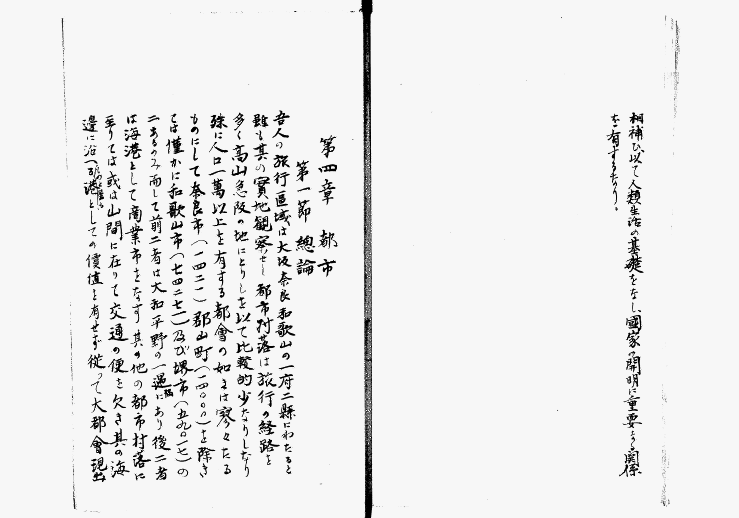 相補ひ以て人類生活の基礎をなし、國家の開明に重要なる関係
を有するなり。
第四章 都市
第一節 總論
吾人の旅行區域は大坂奈良和歌山の一府二縣にわたると
雖も其の實地観察せし都市村落は旅行の経路を
多く高山急阪の地にとりしを以て比較的少なりしなり
殊に人口一萬以上を有する都會の如きは寥々たる
ものにして奈良市(一四二一)郡山町(一四〇〇〇)を除き
ては僅かに和歌山市(七四二七一)及び堺市(五九〇一七)の
二あるのみ而して前二者は大和平野の一隅にあり後二者
は海港として商業市をなす其の他の都市村落に
至りては或は山間に在りて交通の便を欠き其の海
邊に沿へる港としての價値を有せず從って大都會現出